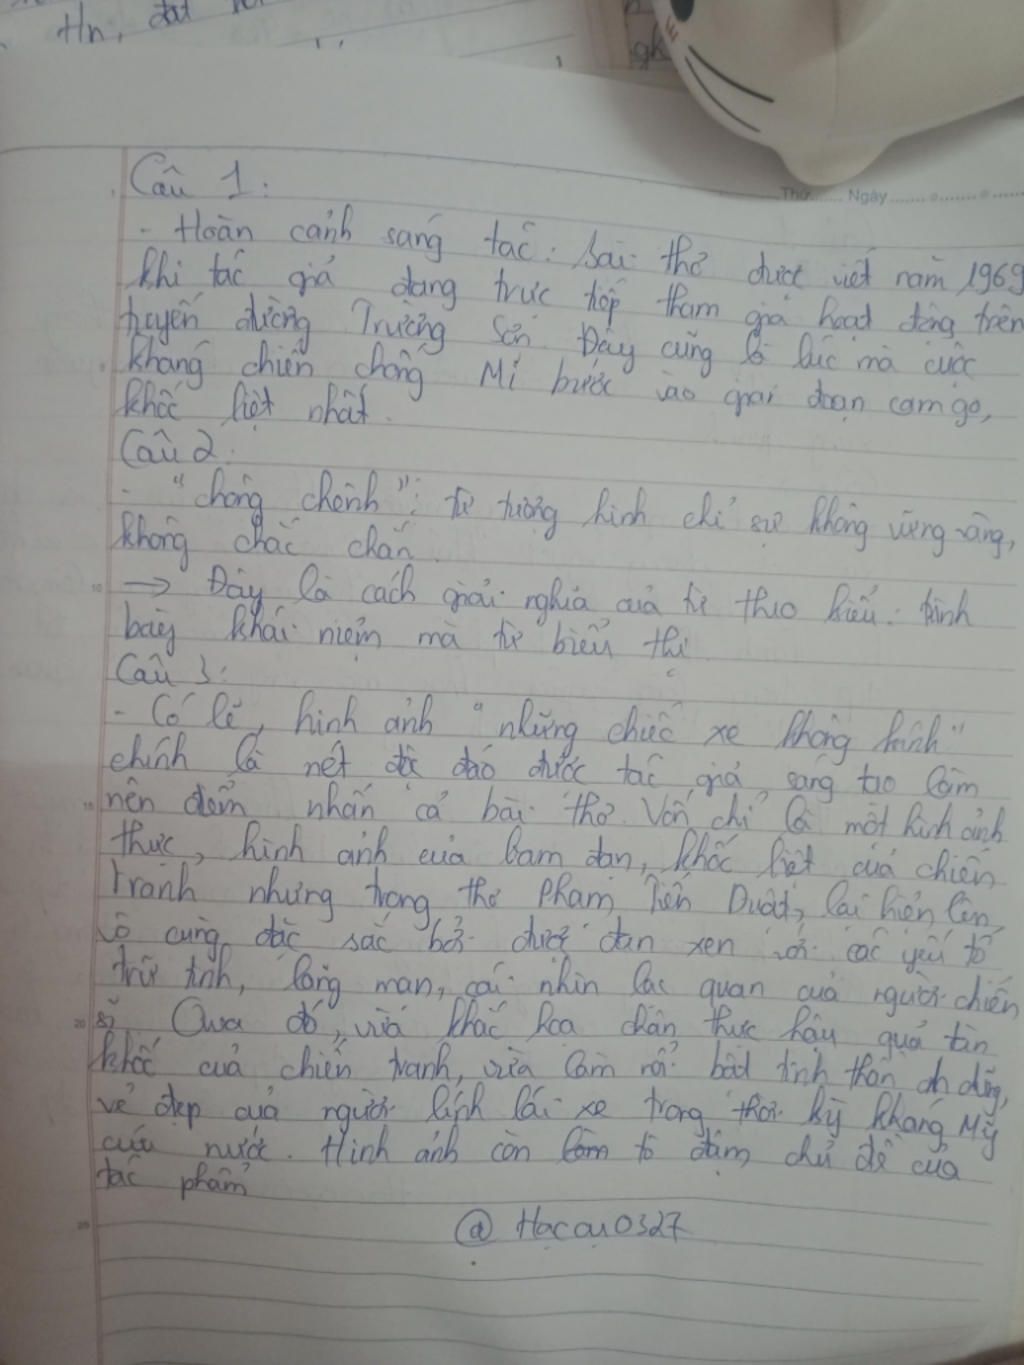 Hn, đất
gh
Thứ....... Ngày
Câu 1:
- Hoàn cảnh sáng tác: Bài thơ được viết năm 1969
khi tác giả đang trực tiếp tham gia hoạt động trên
tuyến đường Trường Sơn. Đây cũng là lúc mà cuộc
kháng chiến chống Mĩ bước vào giai đoạn cam go,
khốc liệt nhất.
Câu 2:
- "chông chênh": từ tượng hình chỉ sự không vững vàng,
không chắc chắn.
→ Đây là cách giải nghĩa của từ theo kiểu: trình
bày khái niệm mà từ biểu thị
Câu 3:
- Có lẽ, hình ảnh "những chiếc xe không kính"
chính là nét độc đáo được tác giả sáng tạo làm
nên điểm nhấn cả bài thơ. Vốn chỉ là một hình ảnh
thực, hình ảnh của bam đạn, khốc liệt của chiến
tranh nhưng trong thơ Phạm Tiến Duật, lại hiện lên
vô cùng đặc sắc bởi được đan xen với các yếu tố
trữ tình, lãng mạn, cái nhìn lạc quan của người chiến
sĩ. Qua đó, vừa khắc họa chân thực hậu quả tàn
khốc của chiến tranh, vừa làm nổi bật tinh thần
vẻ đẹp của người lính lái xe trong thời kỳ kháng Mỹ
cứu nước. Hình ảnh còn làm tô đậm chủ đề của
tác phẩm
@ Hacau0327